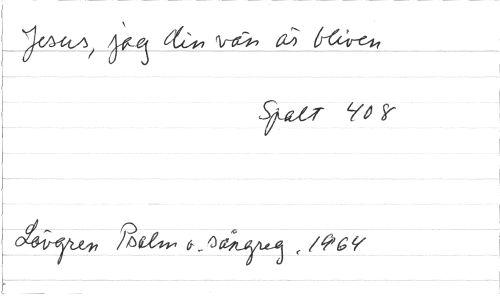 Jesus, jag din vän är bliven
Spalt 408
Lövgren Psalm o. sångreg. 1964